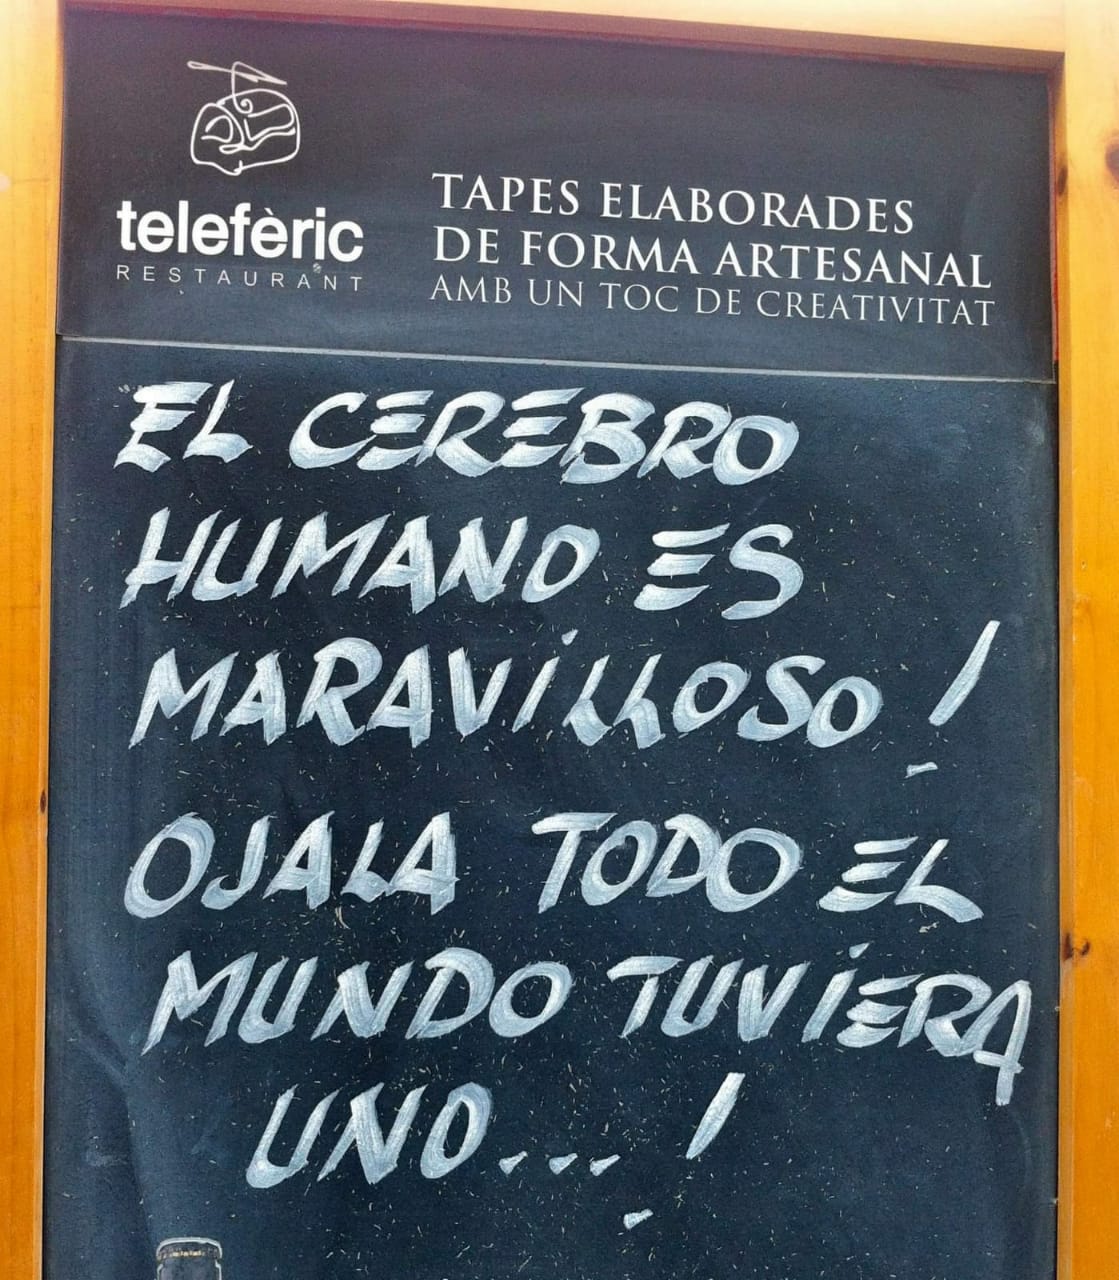 telefèric
RESTAURANT
TAPES ELABORADES
DE FORMA ARTESANAL
AMB UN TOC DE CREATIVITAT
EL CEREBRO
HUMANO ES
MARAViLLOSO!
OJALA TODO EL
MUNDO TUViERA
UNO...!